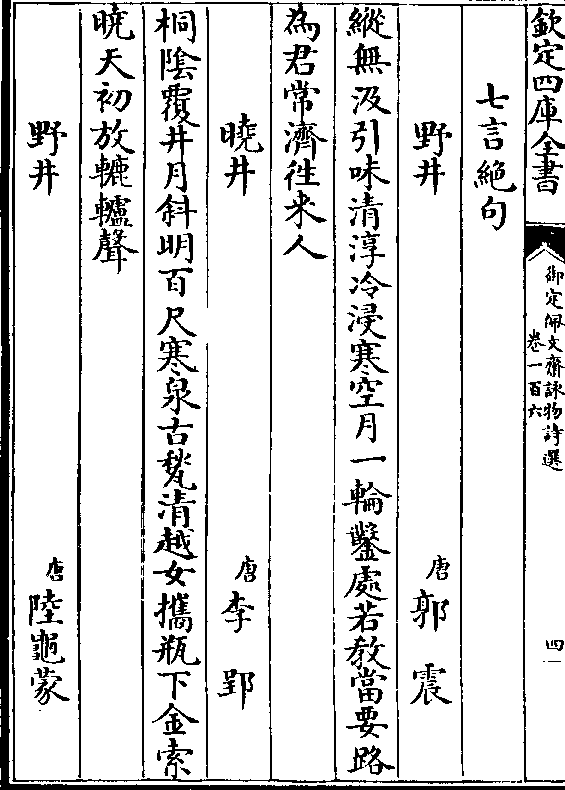 欽定四庫全書
御定佩文齋詠物詩選
卷一百六
四
七言絶句
野井　唐　郭震
縱無汲引味清淳冷浸寒空月一輪鑿處若教當要路
為君常濟徃来人
曉井　唐　李郢
桐陰覆井月斜明百尺寒泉古甃清越女攜瓶下金索
曉天初放轆轤聲
野井　唐　陸龜蒙